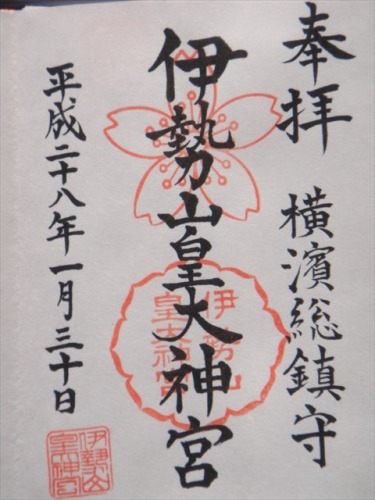 奉拝 横濱総鎮守
伊勢山皇大神宮
平成二十八年一月三十日
伊勢山
皇大神宮
伊勢山
皇神宮